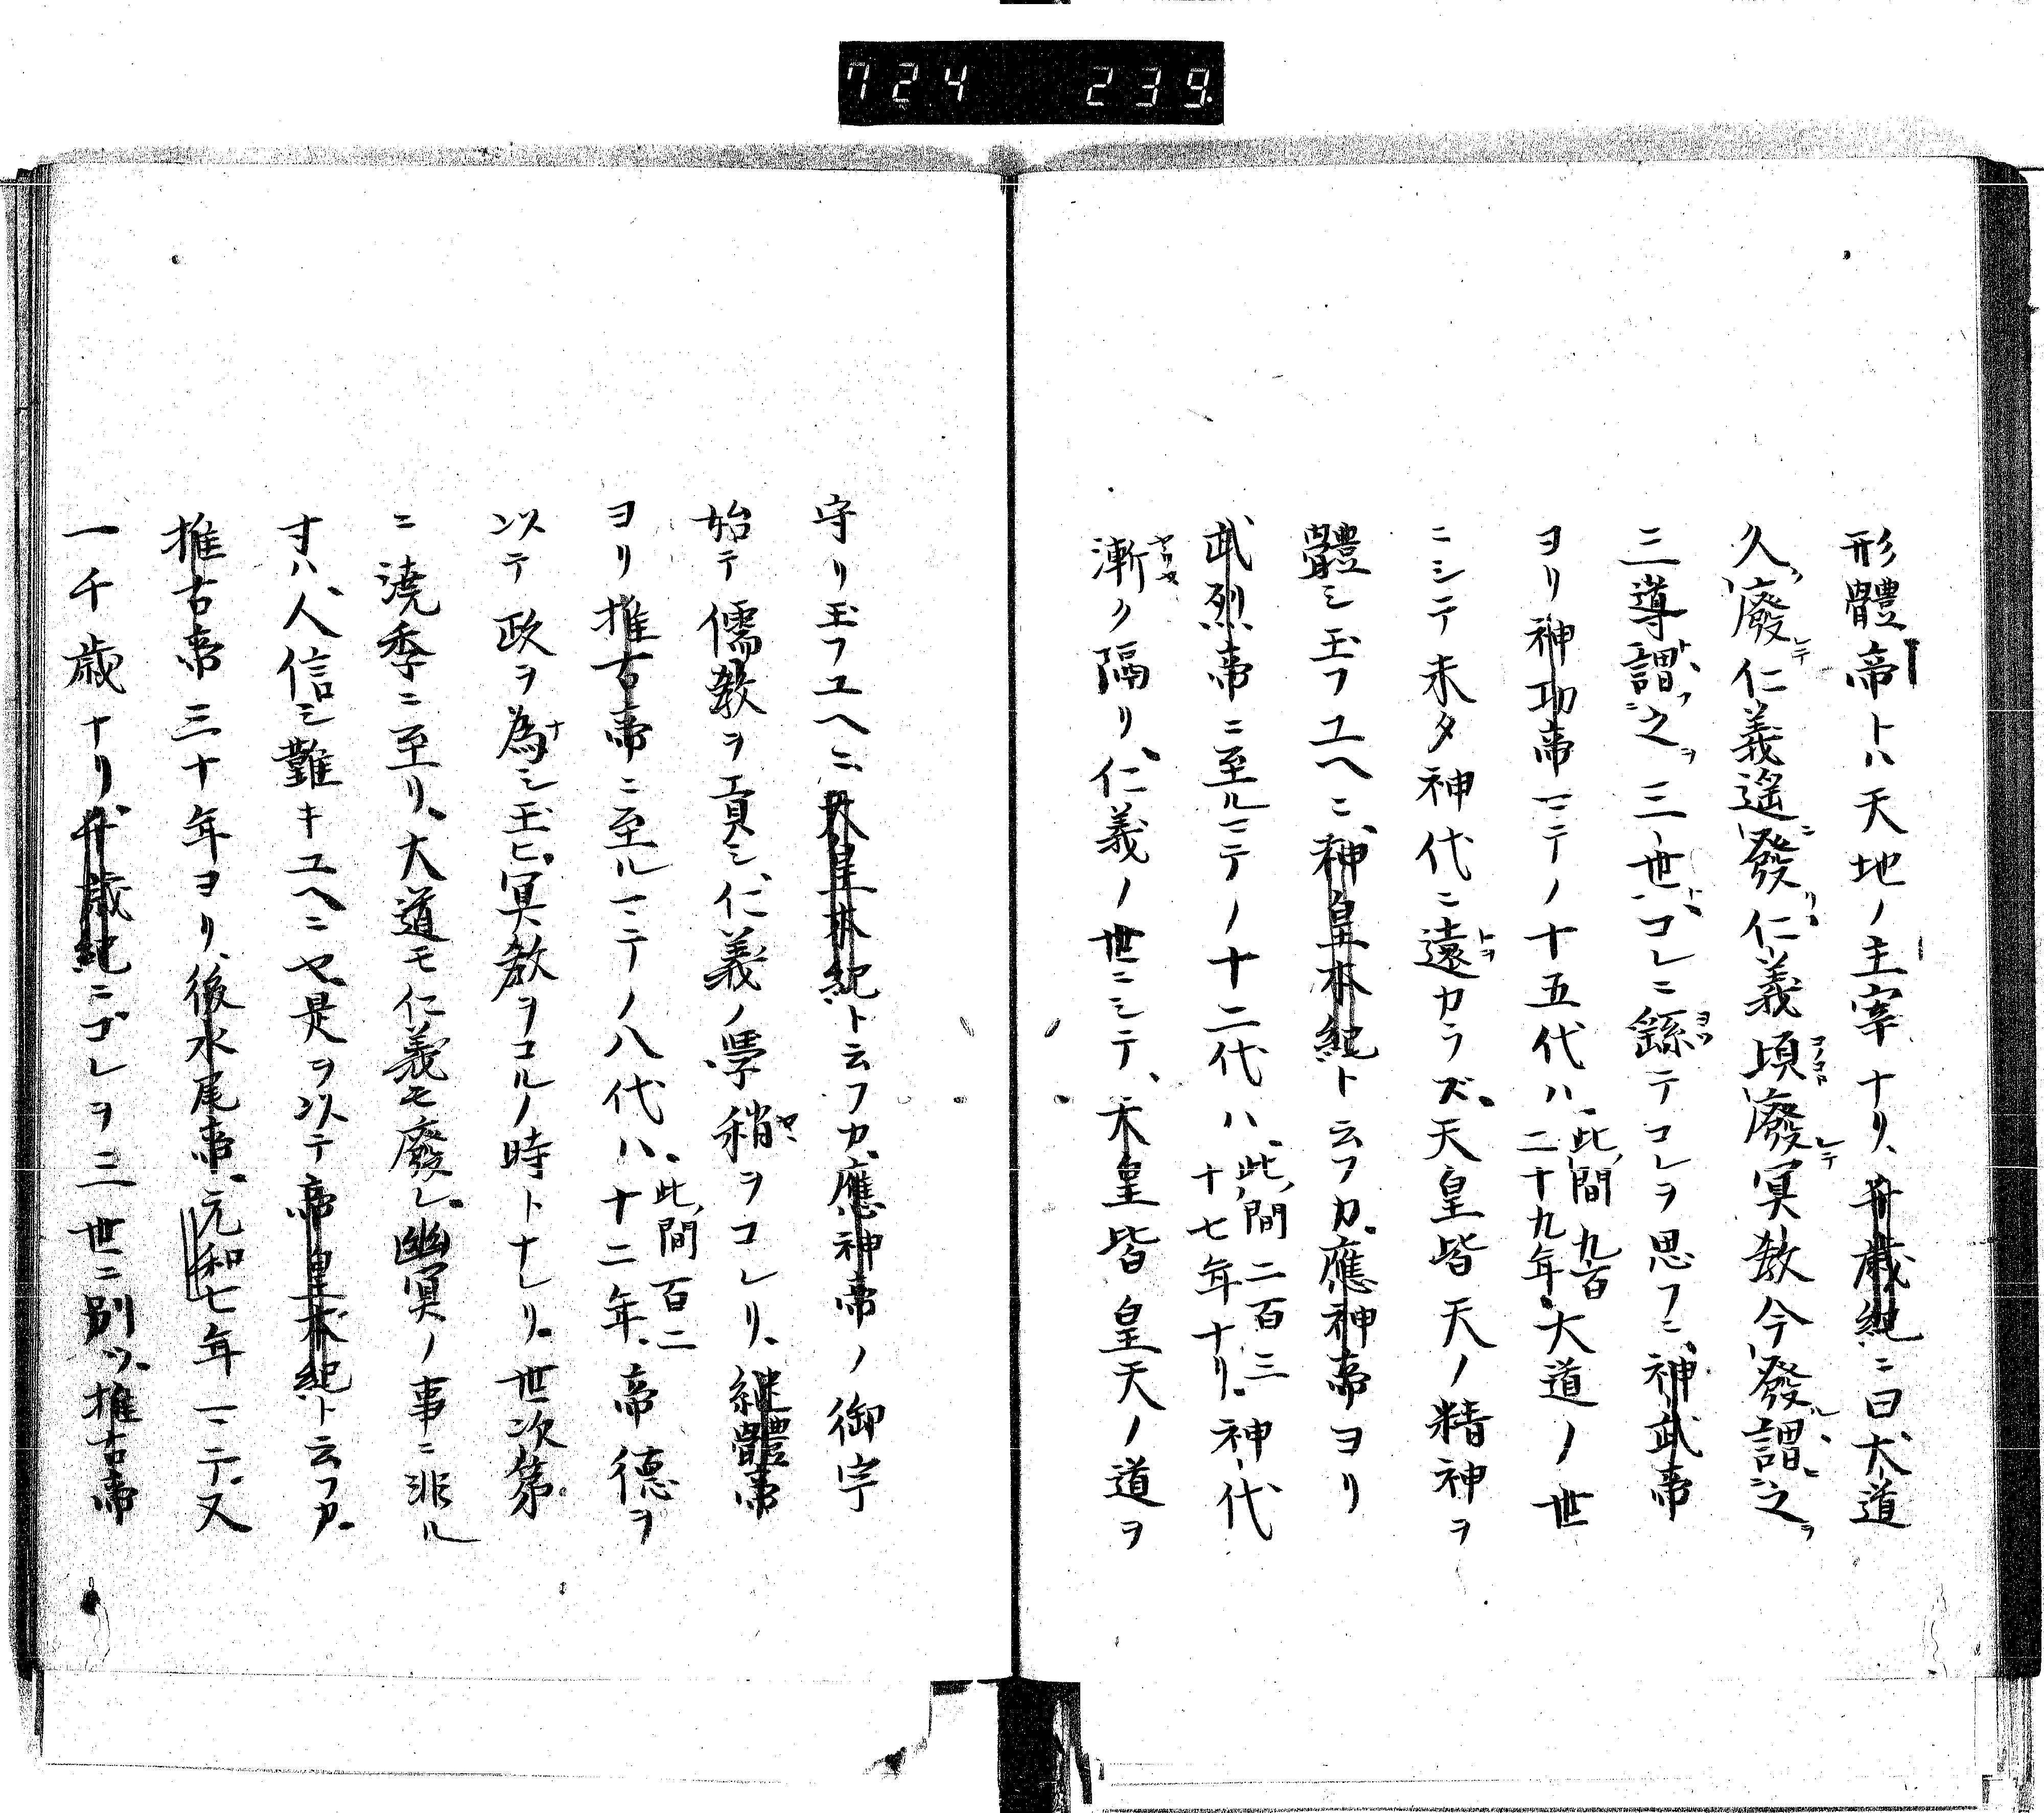 724 239.
形體帝トハ天地ノ主宰ナリ、舟歳紀ニ曰大道
久廢仁義遙發仁義頃廢冥教今發謂之
三導謂之三世コレニ繇テコレヲ思フニ神武帝
ヨリ神功帝ニテノ十五代ハ此間九百二十九年大道ノ世
ニシテ未タ神代ニ遠カラズ天皇皆天ノ精神ヲ
體シ玉フユヘニ神皇本紀ト云フカ應神帝ヨリ
武烈帝ニ至ルニテノ十二代ハ此間二百三十七年ナリ神代
漸ク隔リ仁義ノ世ニシテ天皇皆皇天ノ道ヲ
守リ玉フユヘニ天皇本紀ト云フカ應神帝ノ御宇
始テ儒教ヲ貢シ仁義ノ學稍ヲコレリ継體帝
ヨリ推古帝ニ至ルニテノ八代ハ此間百二十二年帝德ヲ
以テ政ヲ為シ玉ヒ冥教ヲコルノ時トナレリ世次第
ニ澆季ニ至リ大道モ仁義モ廢レ幽冥ノ事ニ非ル
寸ハ人信シ難キユヘニヤ是ヲ以テ帝皇本紀ト云フカ
推古帝三十年ヨリ後水尾帝元和七年ニテ又
一千歳ナリ舟歳紀ニコレヲ三世ニ別ツ推古帝